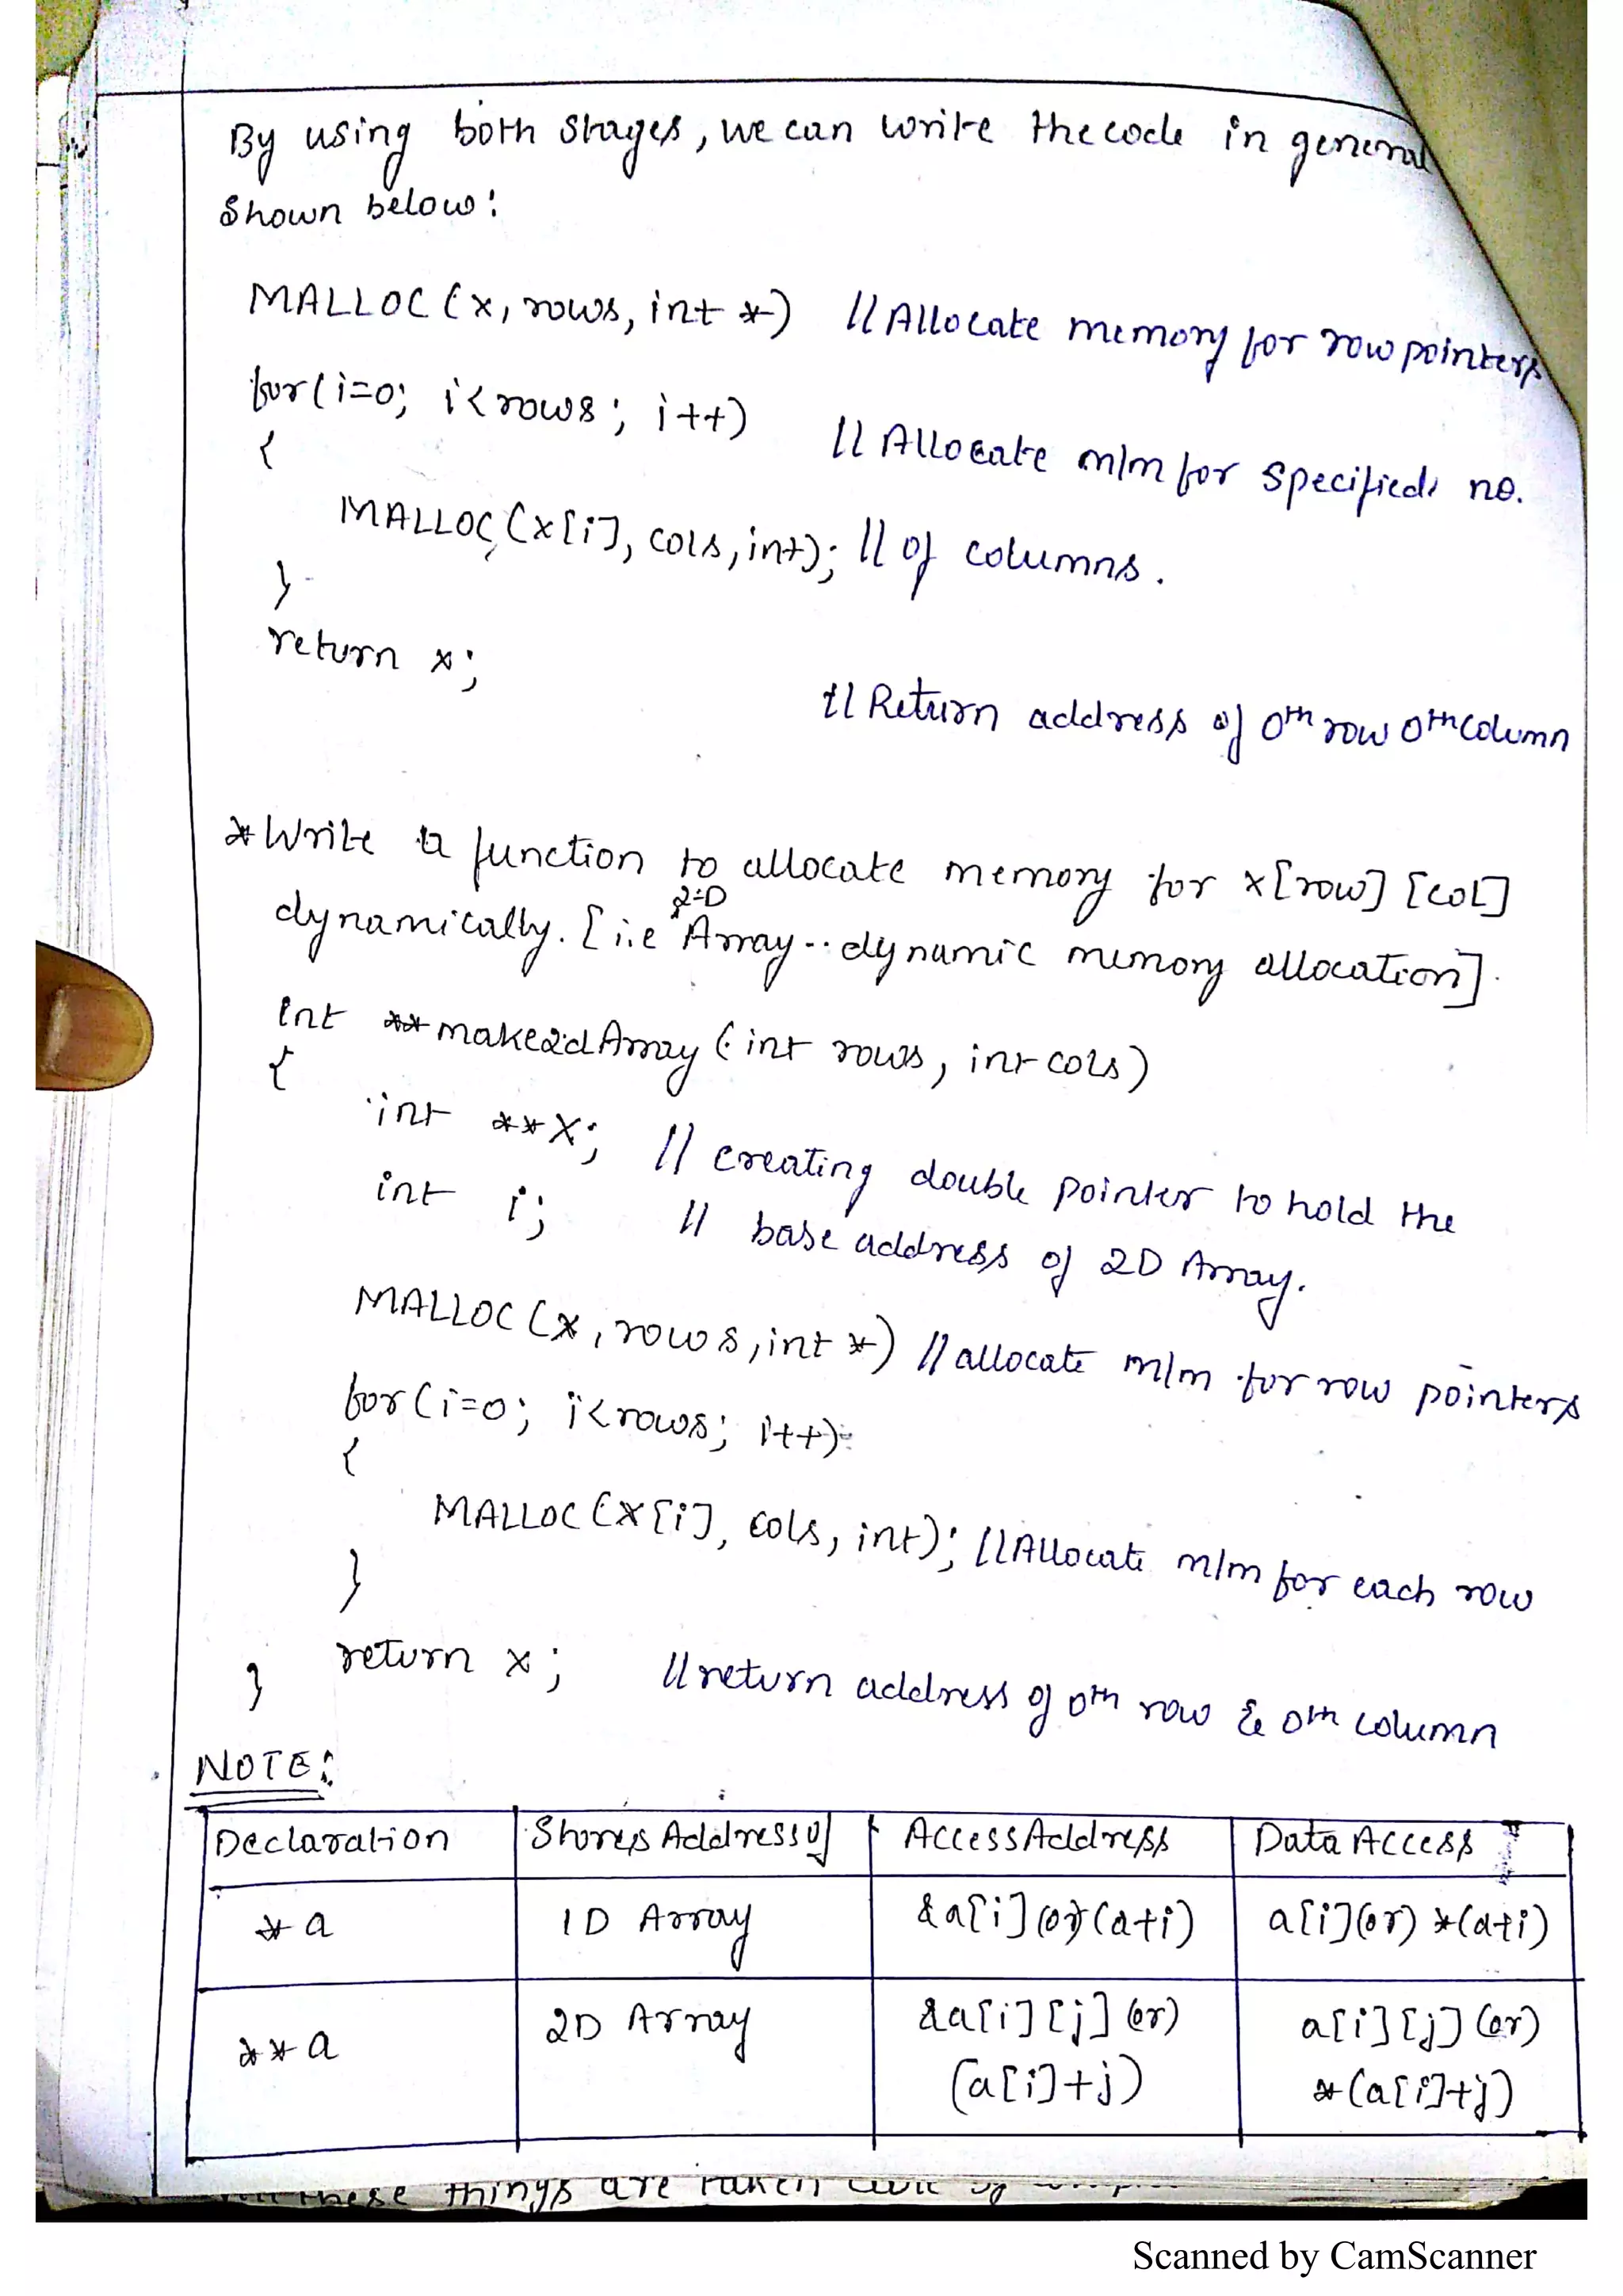 By using both stages, we can write the code in general
shown below:
MALLOC (x, rows, int *) // Allocate memory for row pointers
for(i=0; i<rows; i++)
{ // Allocate m/m for specified no.
MALLOC (x[i], cols, int); // of columns.
}
return x;
// Return address of 0th row 0th column
* Write a function to allocate memory for x[row] [col]
dynamically. [i.e 2-D Array -- dynamic memory allocation].
int **make2dArray (int rows, int cols)
{
int **x; // creating double pointer to hold the
int i; // base address of 2D Array.
MALLOC (x, rows, int *) // allocate m/m for row pointers
for(i=0; i<rows; i++)
{
MALLOC (x[i], cols, int); // Allocate m/m for each row
}
return x; // return address of 0th row & 0th column
}
NOTE:
Declaration Stores Address of Access Address Data Access
*a 1D Array &a[i] (or) (a+i) a[i] (or) *(a+i)
**a 2D Array &a[i][j] (or) a[i][j] (or)
(a[i]+j) *(a[i]+j)
these things are taken care of
Scanned by CamScanner